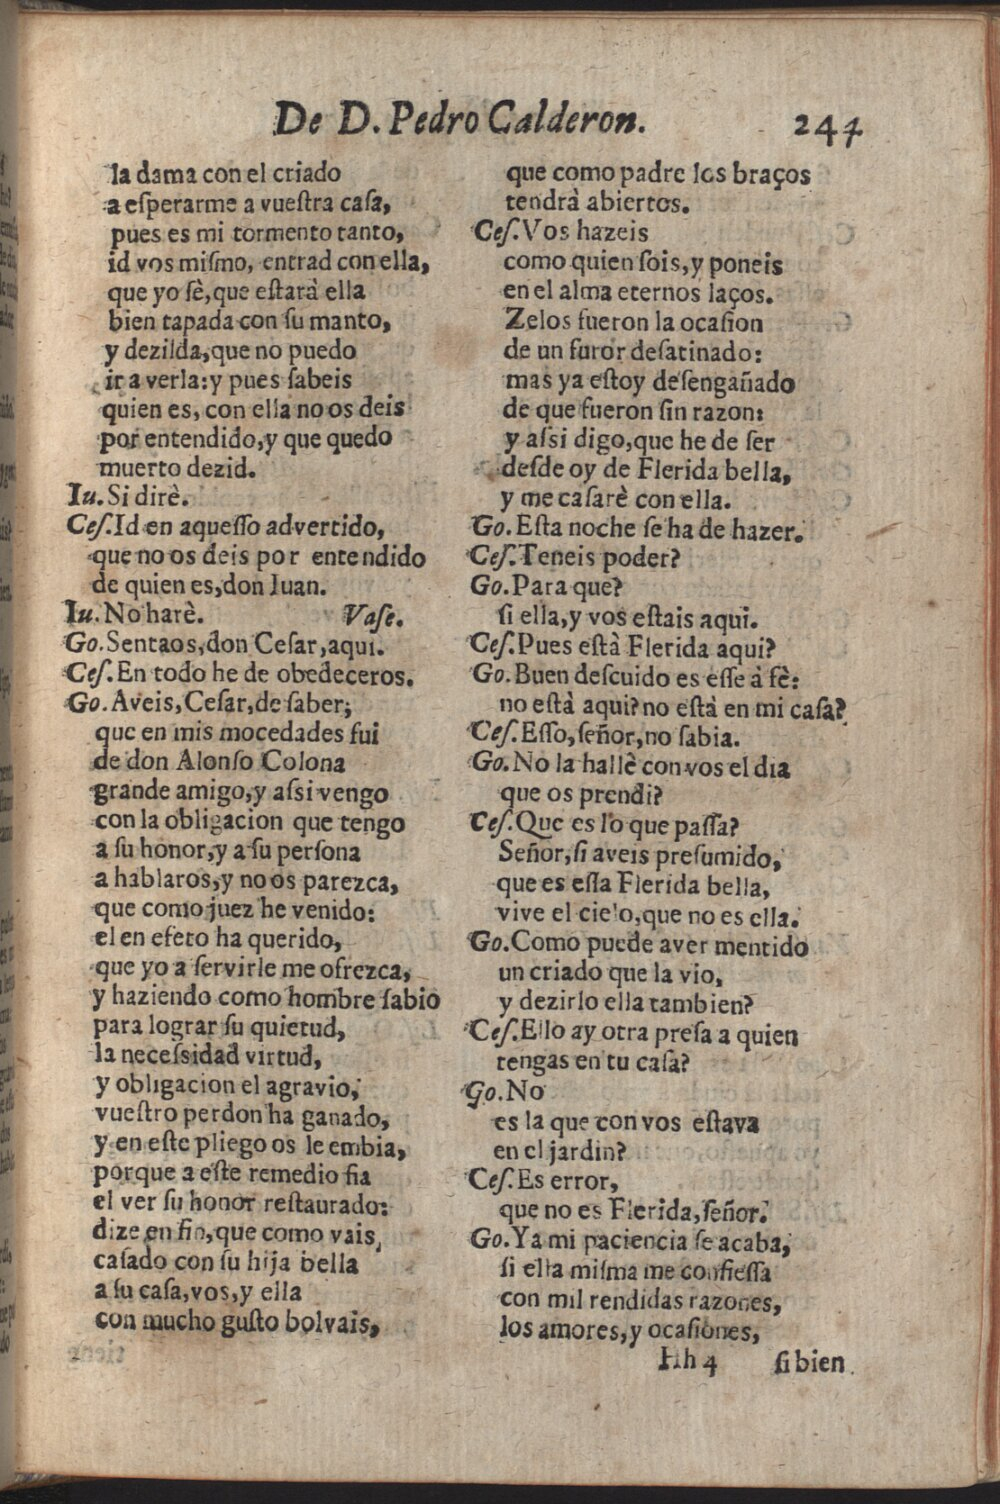 De D. Pedro Calderon. 244
la dama con el criado
a eſperarme a vueſtra caſa,
pues es mi tormento tanto,
id vos miſmo, entrad con ella,
que yo sè, que eſtarà ella
bien tapada con ſu manto,
y dezilda, que no puedo
ir a verla: y pues ſabeis
quien es, con ella no os deis
por entendido, y que quedo
muerto dezid.
Iu. Si dirè.
Ceſ. Id en aqueſſo advertido,
que no os deis por entendido
de quien es, don Iuan.
Iu. No harè. Vaſe.
Go. Sentaos, don Ceſar, aqui.
Ceſ. En todo he de obedeceros.
Go. Aveis, Ceſar, de ſaber,
que en mis mocedades fui
de don Alonſo Colona
grande amigo, y aſsi vengo
con la obligacion que tengo
a ſu honor, y a ſu perſona
a hablaros, y no os parezca,
que como juez he venido:
el en efeto ha querido,
que yo a ſervirle me ofrezca,
y haziendo como hombre ſabio
para lograr ſu quietud,
la neceſsidad virtud,
y obligacion el agravio,
vueſtro perdon ha ganado,
y en eſte pliego os le embia,
porque a eſte remedio fia
el ver ſu honor reſtaurado:
dize en fin, que como vais,
caſado con ſu hija bella
a ſu caſa, vos, y ella
con mucho guſto bolvais,
que como padre los braços
tendrà abiertos.
Ceſ. Vos hazeis
como quien ſois, y poneis
en el alma eternos laços.
Zelos fueron la ocaſion
de un furor deſatinado:
mas ya eſtoy deſengañado
de que fueron ſin razon:
y aſsi digo, que he de ſer
deſde oy de Flerida bella,
y me caſarè con ella.
Go. Eſta noche ſe ha de hazer.
Ceſ. Teneis poder?
Go. Para que?
ſi ella, y vos eſtais aqui.
Ceſ. Pues eſtà Flerida aqui?
Go. Buen deſcuido es eſſe à fè:
no eſtà aqui? no eſtà en mi caſa?
Ceſ. Eſſo, ſeñor, no ſabia.
Go. No la hallè con vos el dia
que os prendi?
Ceſ. Que es lo que paſſa?
Señor, ſi aveis preſumido,
que es eſſa Flerida bella,
vive el cielo, que no es ella.
Go. Como puede aver mentido
un criado que la vio,
y dezirlo ella tambien?
Ceſ. Ello ay otra preſa a quien
tengas en tu caſa?
Go. No
es la que con vos eſtava
en el jardin?
Ceſ. Es error,
que no es Flerida, ſeñor.
Go. Ya mi paciencia ſe acaba,
ſi ella miſma me confieſſa
con mil rendidas razones,
los amores, y ocaſiones,
Hh 4 ſi bien